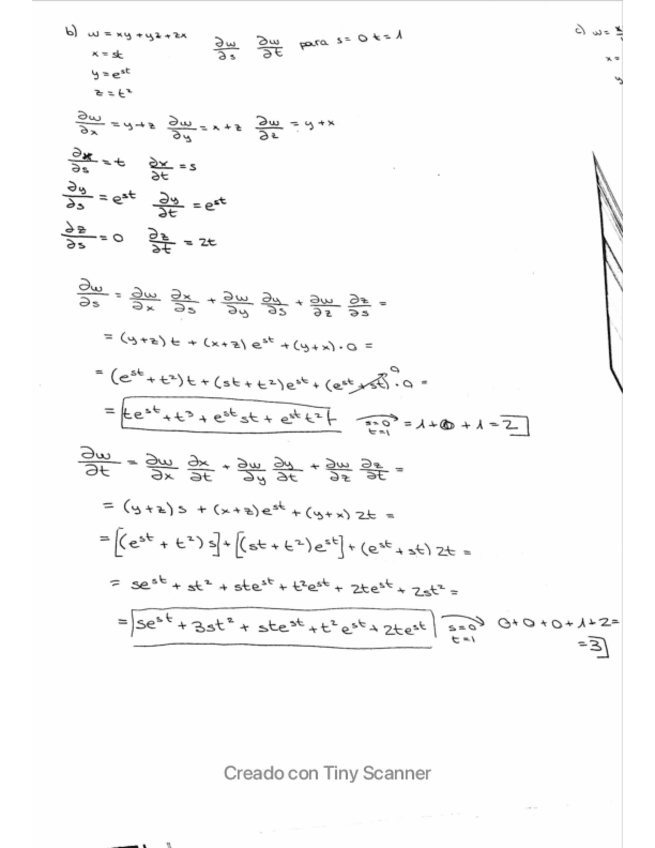 b) w = xy + yz + zx   ∂w/∂s   ∂w/∂t   para s = 0 t = 1
x = st
y = e^st
z = t²
∂w/∂x = y + z   ∂w/∂y = x + z   ∂w/∂z = y + x
∂x/∂s = t   ∂x/∂t = s
∂y/∂s = e^st   ∂y/∂t = e^st
∂z/∂s = 0   ∂z/∂t = 2t
∂w/∂s = ∂w/∂x ∂x/∂s + ∂w/∂y ∂y/∂s + ∂w/∂z ∂z/∂s =
= (y+z) t + (x+z) e^st + (y+x) · 0 =
= (e^st + t²) t + (st + t²) e^st + (e^st + st) · 0 =
0
= te^st + t³ + e^st st + e^st t²   s=0 t=1 = 1 + 0 + 1 = 2
∂w/∂t = ∂w/∂x ∂x/∂t + ∂w/∂y ∂y/∂t + ∂w/∂z ∂z/∂t =
= (y+z) s + (x+z) e^st + (y+x) 2t =
= [(e^st + t²) s] + [(st + t²) e^st] + (e^st + st) 2t =
= se^st + st² + ste^st + t²e^st + 2te^st + 2st² =
= se^st + 3st² + ste^st + t²e^st + 2te^st   s=0 t=1   0+0+0+1+2=
= 3
c) w = x
x =
y
Creado con Tiny Scanner